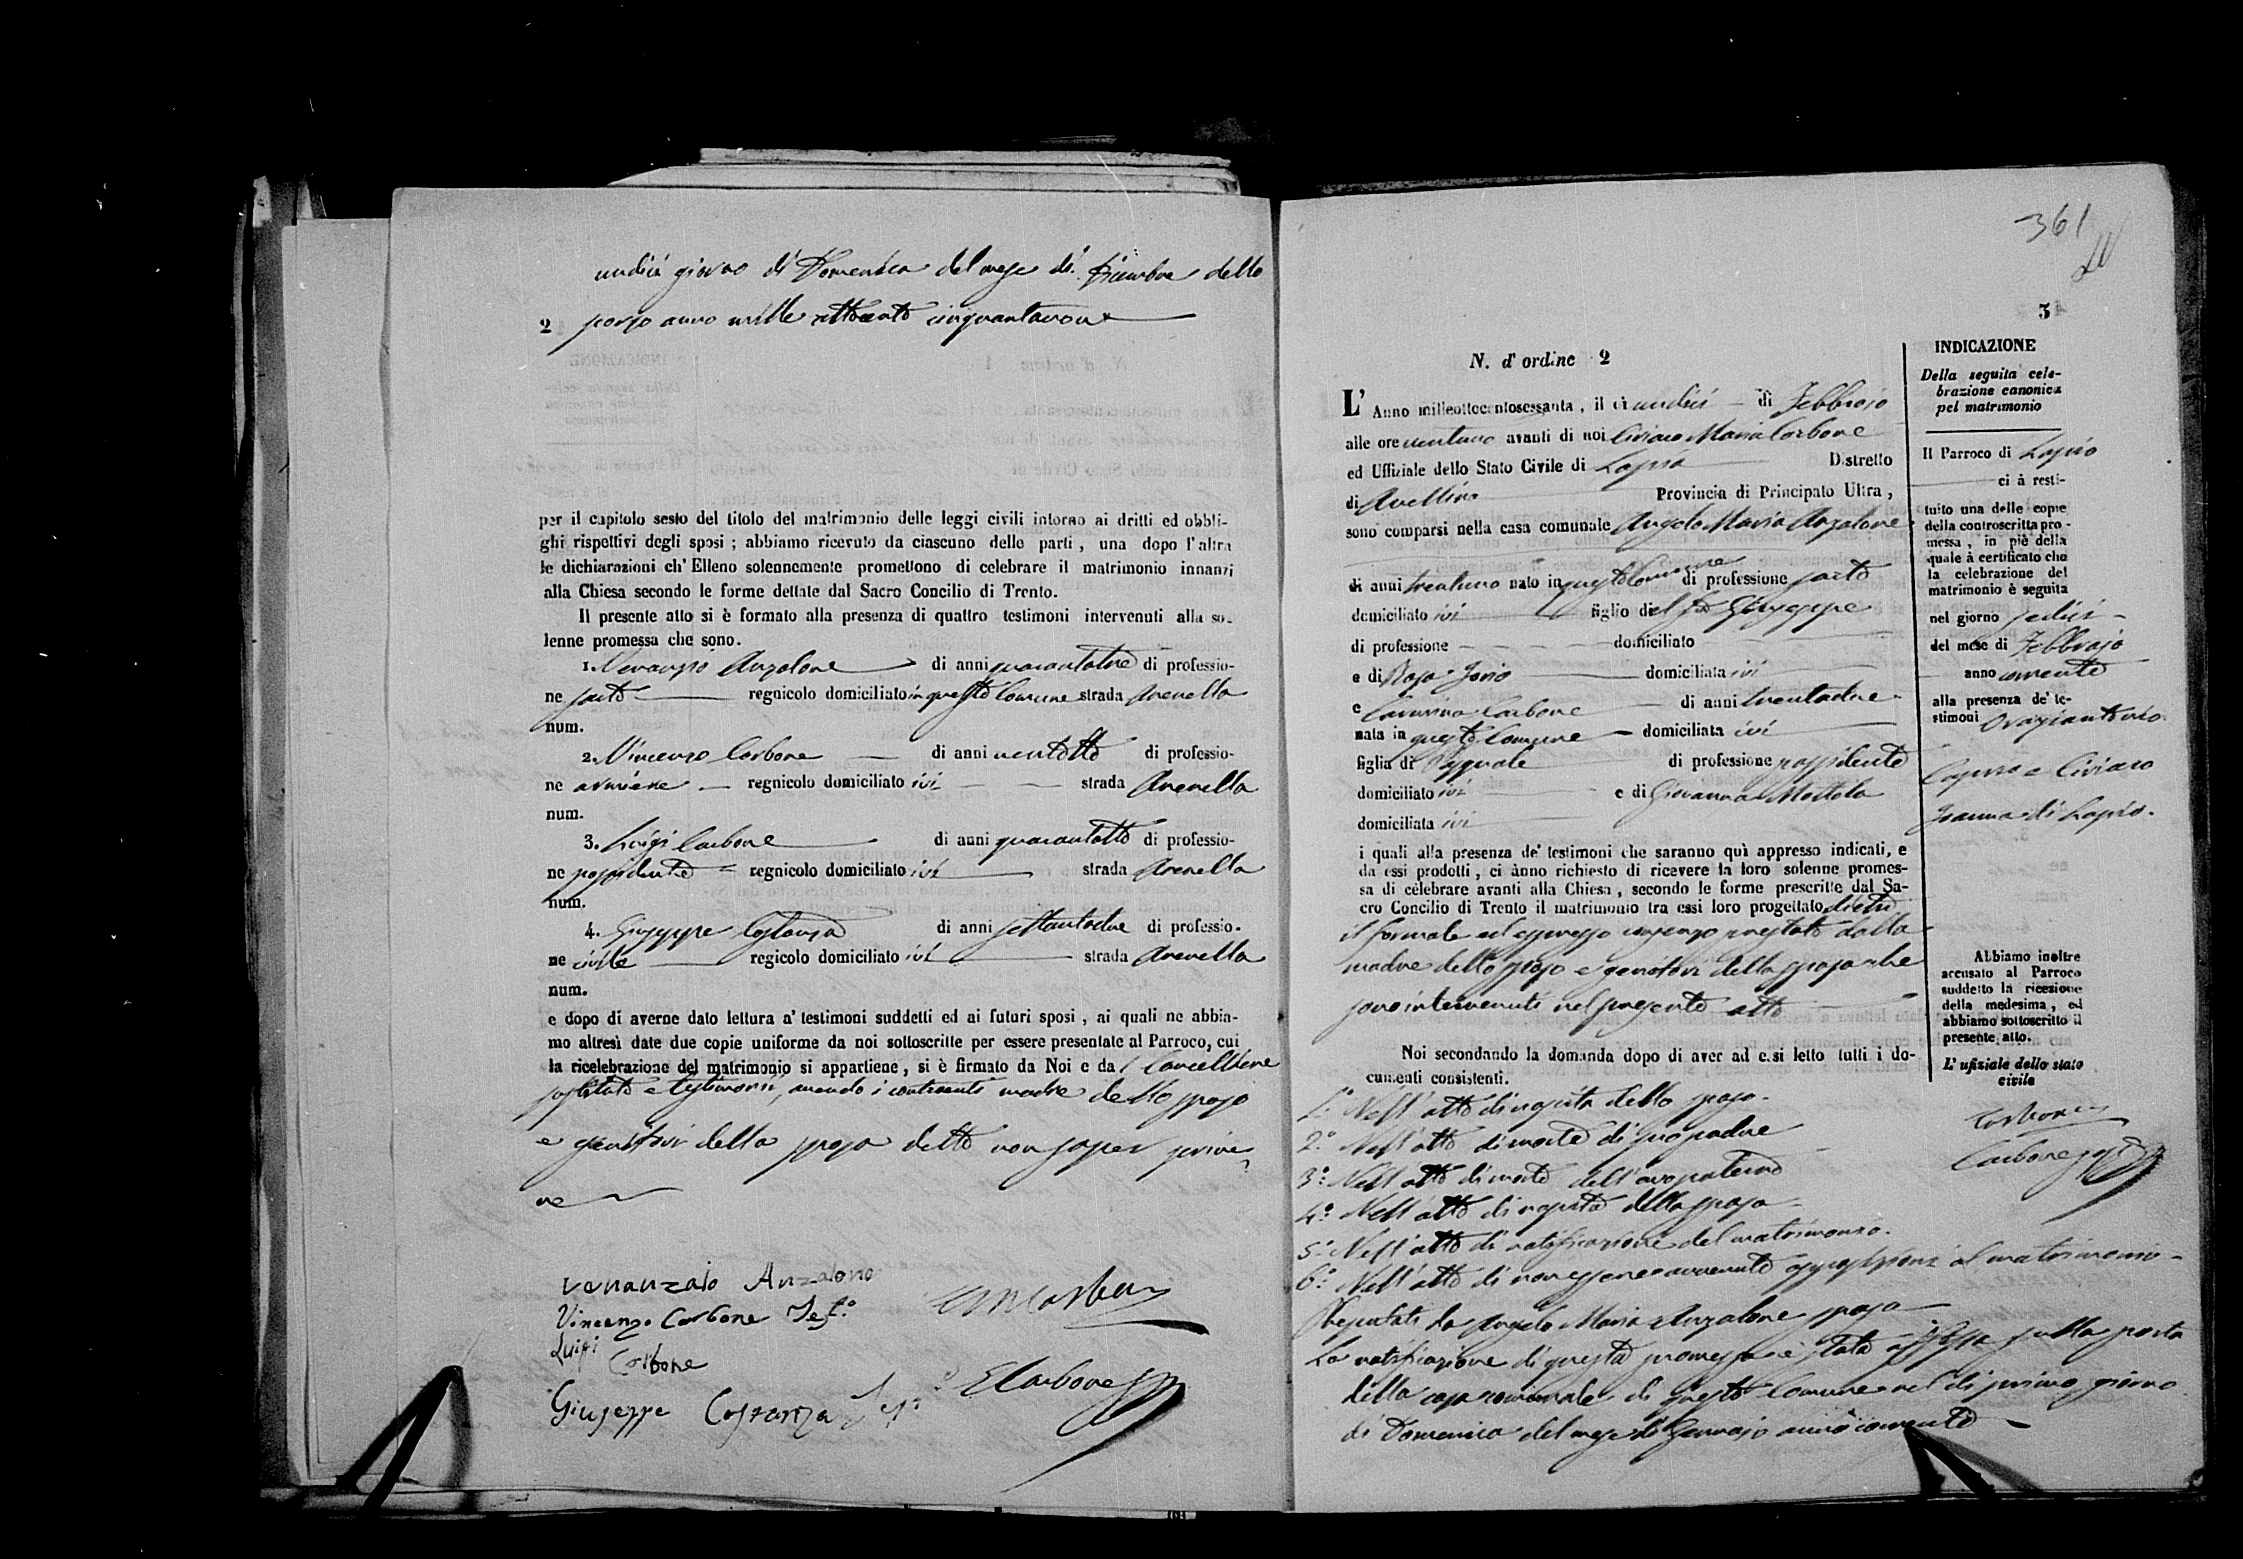 undici giorno di Domenica del mese di Dicembre dello
2 scorso anno mille ottocento cinquantanove
per il capitolo sesto del titolo del matrimonio delle leggi civili intorno ai dritti ed obbli-
ghi rispettivi degli sposi ; abbiamo ricevuto da ciascuno delle parti , una dopo l'altra
le dichiarazioni ch' Elleno solennemente promettono di celebrare il matrimonio innanzi
alla Chiesa secondo le forme dettate dal Sacro Concilio di Trento.
Il presente atto si è formato alla presenza di quattro testimoni intervenuti alla so-
lenne promessa che sono.
1. Venanzio Anzalone di anni quarantatre di professio-
ne sarto regnicolo domiciliato in questo Comune strada Arenella
num.
2. Vincenzo Carbone di anni ventotto di professio-
ne regnicolo domiciliato ivi strada Arenella
num.
3. Luigi Carbone di anni quarantotto di professio-
ne possidente regnicolo domiciliato ivi strada Arenella
num.
4. Giuseppe Costanza di anni settantadue di professio.
ne civile regicolo domiciliato ivi strada Arenella
num.
e dopo di averne dato lettura a' testimoni suddetti ed ai futuri sposi , ai quali ne abbia-
mo altresì date due copie uniforme da noi sottoscritte per essere presentate al Parroco, cui
la ricelebrazione del matrimonio si appartiene , si è firmato da Noi e da l Cancelliere
sostituto e testimonii, avendo i contraenti madre dello sposo
e genitori della sposa detto non saper scrive
re
venanzaio Anzalone
Vincenzo Carbone Test.o
Luigi
Carbone
Giuseppe Costanza
Carbone
361
3
N. d' ordine 2
L' Anno milleottocentosessanta , il dì undici di Febbrajo
alle ore ventuno avanti di noi Ciriaco Maria Carbone
ed Uffiziale dello Stato Civile di Lapio Distretto
di Avellino Provincia di Principato Ultra ,
sono comparsi nella casa comunale Angelo Maria Anzalone
di anni trentuno nato in questo Comune di professione sarto
domiciliato ivi figlio di Giuseppe
di professione domiciliato
e di Rosa Iorio domiciliata ivi
e Carmina Carbone di anni trentadue
nata in questo Comune domiciliata ivi
figlia di Pasquale di professione possidente
domiciliato ivi e di Giovanna Mottola
domiciliata ivi
i quali alla presenza de' testimoni che saranno quì appresso indicati, e
da essi prodotti , ci ànno richiesto di ricevere la loro solenne promes-
sa di celebrare avanti alla Chiesa , secondo le forme prescritte dal Sa-
cro Concilio di Trento il matrimonio tra essi loro progettato dietro
il formale ed espresso consenso prestato dalla
madre dello sposo e genitori della sposa che
sono intervenuti nel presente atto
Noi secondando la domanda dopo di aver ad essi letto tutti i do-
cumenti consistenti.
1.° Nell'atto di nascita dello sposo.
2.° Nell'atto di morte di suo padre
3.° Nell'atto di morte dell'avo paterno
4.° Nell'atto di nascita della sposa
5.° Nell'atto di notificazione del matrimonio.
6.° Nell'atto di non essere avvenuto opposizioni al matrimonio
Presentati da Angelo Maria Anzalone sposo
La notificazione di questa promessa è stata affissa sulla porta
della casa comunale di questo Comune nel dì primo giorno
di Domenica del mese di Gennajo anno corrente
INDICAZIONE
Della seguita cele-
brazione canonica
pel matrimonio
Il Parroco di Lapio
ci à resti-
tuito una delle copie
della controscritta pro-
messa , in piè della
quale à certificato che
la celebrazione del
matrimonio è seguita
nel giorno sedici
del mese di Febbrajo
anno corrente
alla presenza de' te-
stimoni Oraziantonio
Caputo e Ciriaco
di Lapio.
Abbiamo inoltre
accusato al Parroco
suddetto la ricezione
della medesima , ed
abbiamo sottoscritto il
presente atto.
L' ufiziale dello stato
civile
Carbone
Carbone